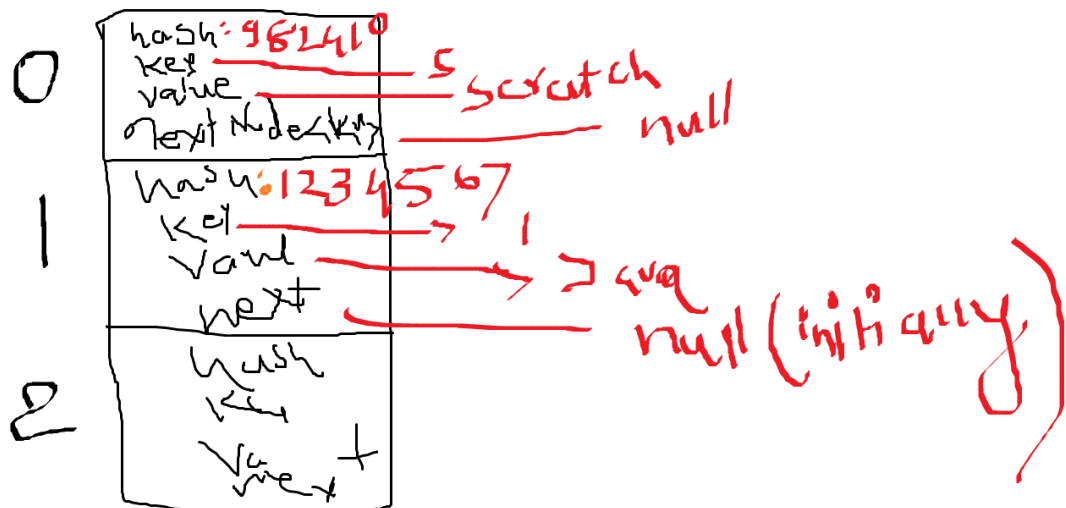 0
hash: 982410
key 5
value scratch
next Node<k,v> null
1
hash: 1234567
key 1
Java
next null (initially)
2
hash
Key
next